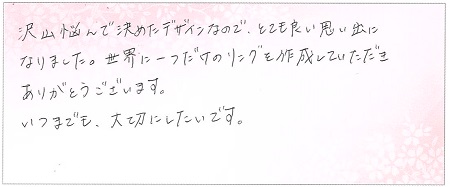 沢山悩んで決めたデザインなので、とても良い思い出に
なりました。世界に一つだけのリングを作成していただき
ありがとうございます。
いつまでも、大切にしたいです。